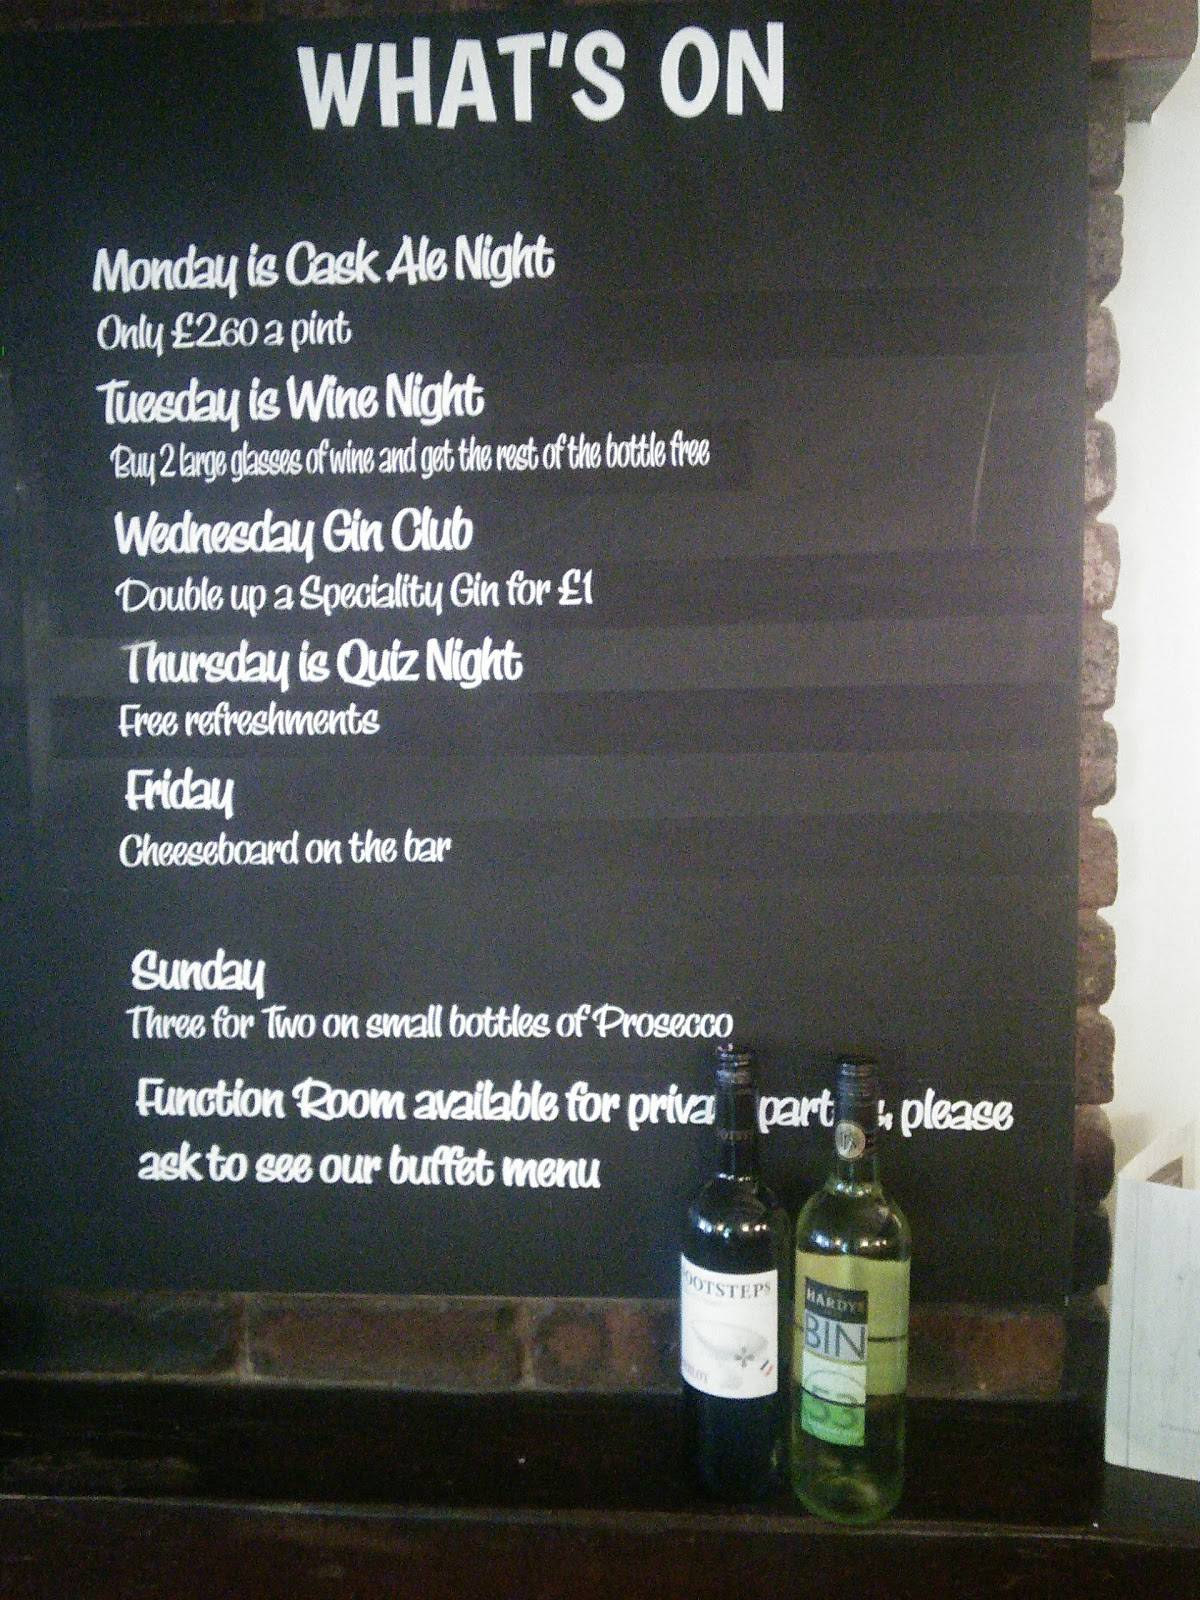 WHAT'S ON
Monday is Cask Ale Night
Only £2.60 a pint
Tuesday is Wine Night
Buy 2 large glasses of wine and get the rest of the bottle free
Wednesday Gin Club
Double up a Speciality Gin for £1
Thursday is Quiz Night
Free refreshments
Friday
Cheeseboard on the bar
Sunday
Three for Two on small bottles of Prosecco
Function Room available for please
ask to see our buffet menu
OOTSTEPS
HARDYS
BIN
53